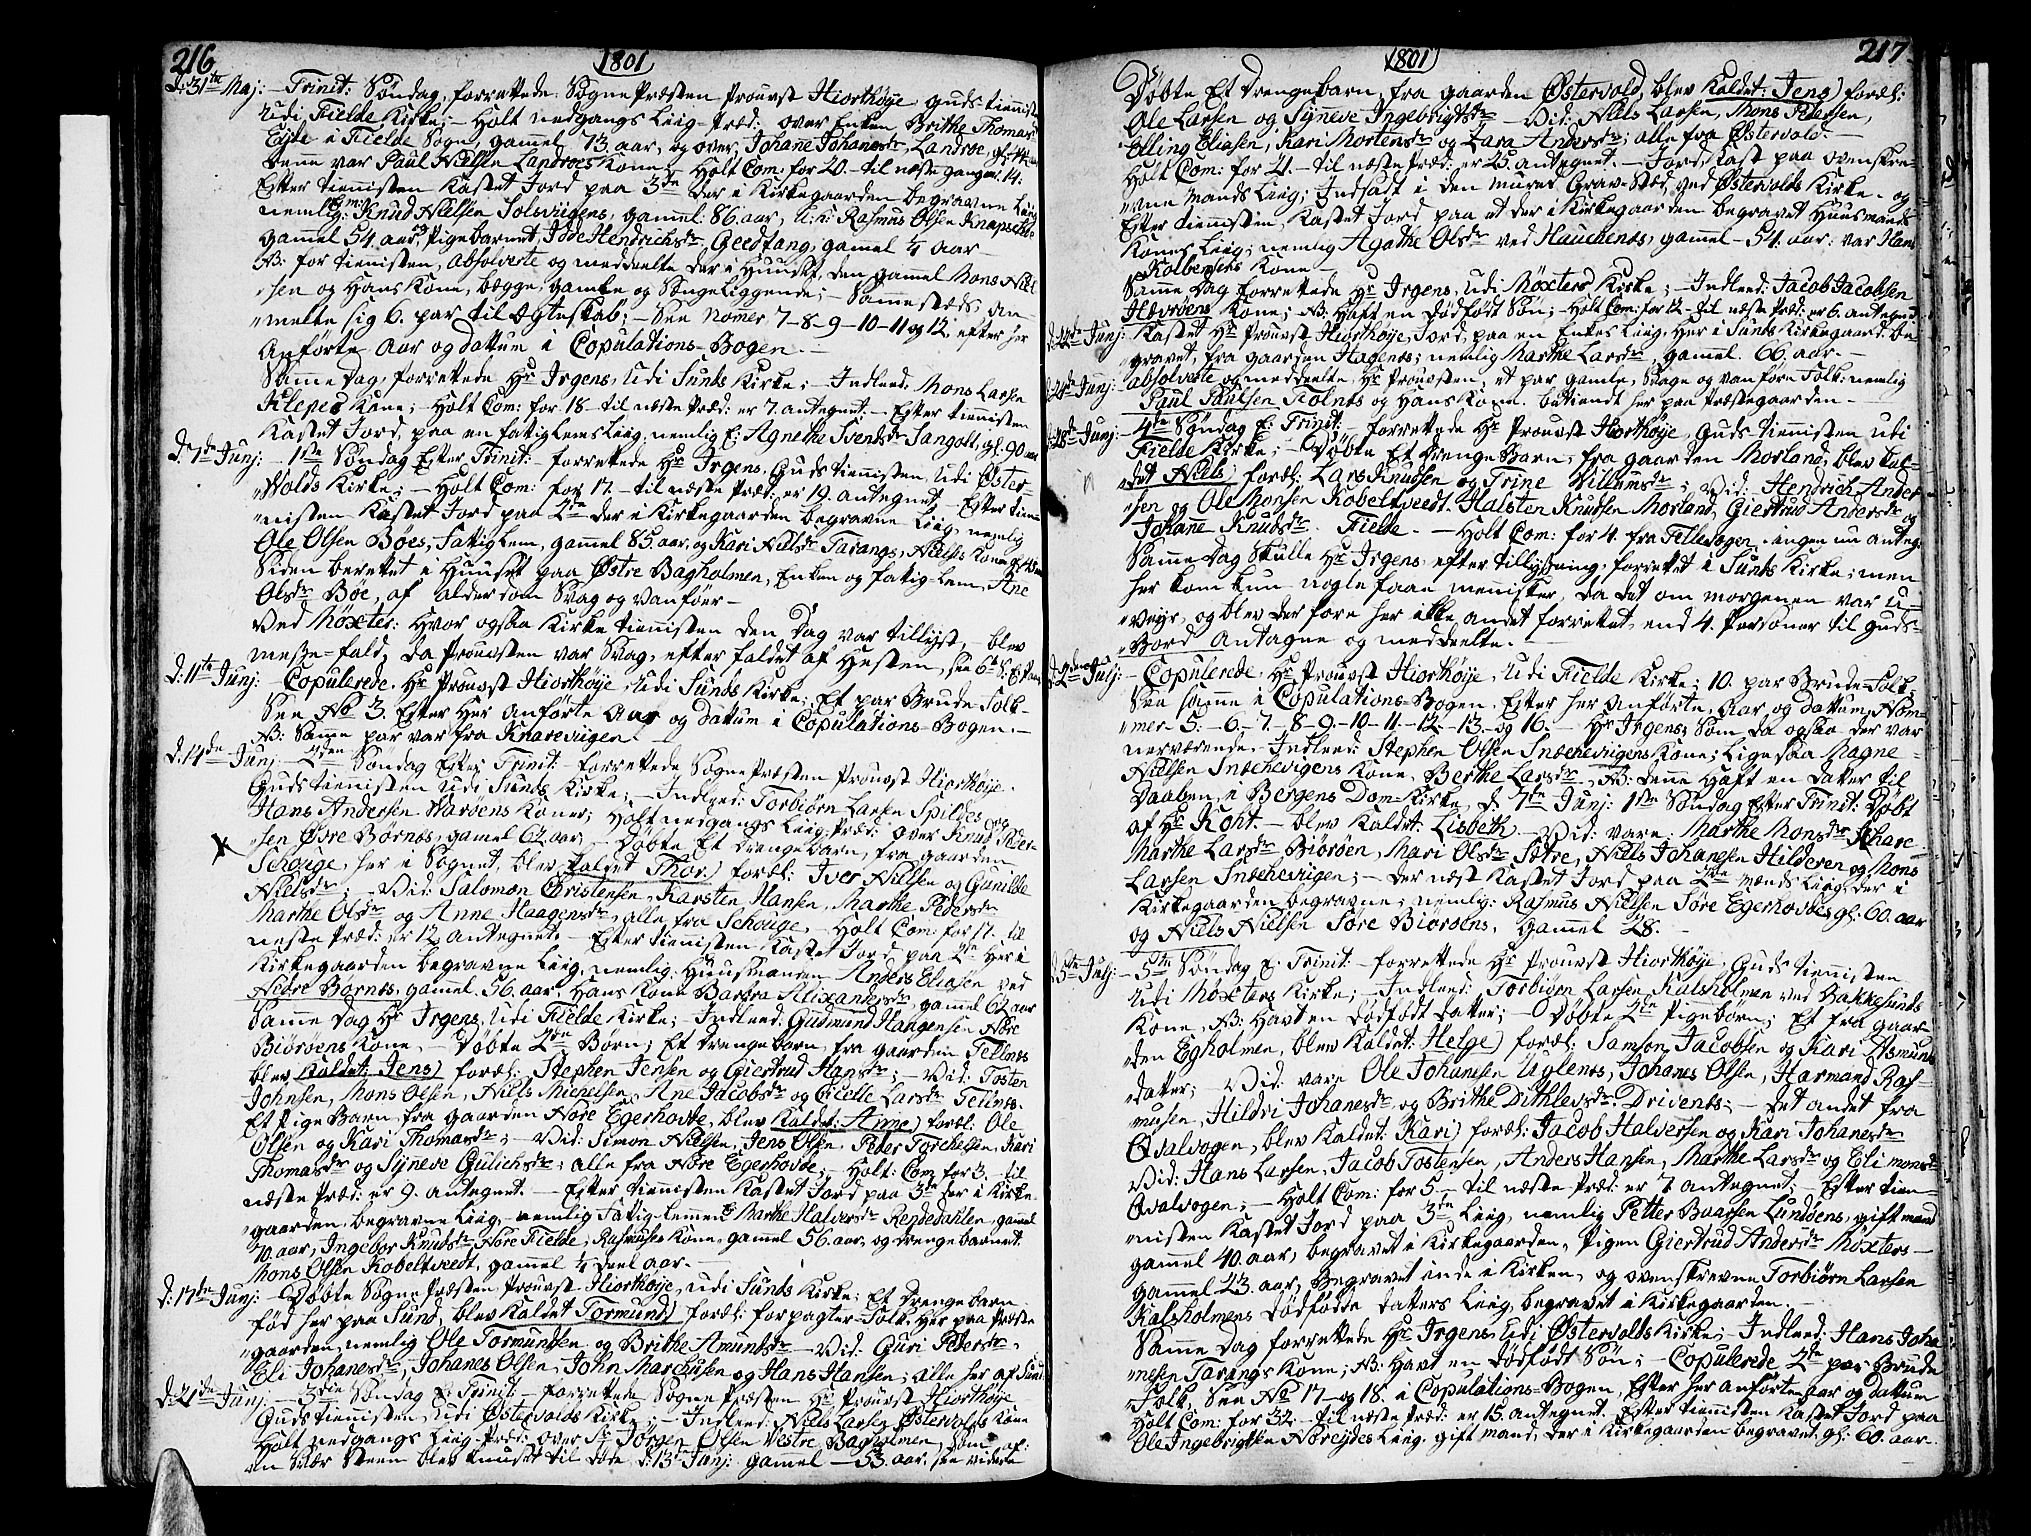 216
1801
d: 31te Maj: - Trinit: Søndag, forrettede Sogne Præsten Prouvst Hiorthøye Guds tienist
Udi Fielde Kirke; - Holt nedgangs Liig-Præd: over Enken Brithe Thomas
i Fielde Sogn, gammel 73. aar, og over Johane Johanesdr Landroe, gl: 44
denne var Paul Nielsen Landroes Kone, Holt Com: for 20. til næste gang 14.
Efter tienisten Kastet Jord paa 3de der i Kirkegaarden begravne Liig
nemlig: Knud Nielsen Solsviigens, gammel 86. aar, Rasmus Olsen Knapsch
gammel 54. aar, og Pigebarnet, Hendrichsdr Geedfang, gamel ¼ aar -
NB: for tienisten, absolverte og meddeelte der i Huuset, den gamel Mons Niel
sen og Hans Kone, begge, gamle og Sængeliggende; - Sammesteds, an-
melte sig 6. par til Egteskab; - See Nomer 7-8-9-10-11 og 12. efter her
Anførte Aar og dattum i Copulations-Bogen. -
Samme dag, forrettede Hr Irgens, Udi Sunds Kirke; - Indleed: Mons Larsen
Klepes Kone; Holt Com: for 18 - til næste Præd: er 7. antegnet: - Efter tienisten
Kastet Jord, paa en fatiglems Liig, nemlig E: Agnethe Svendsdr Sangolt, gl: 90 aar
d: 7de Junj: - 1ste Søndag Efter Trinit: - forrettede Hr Irgens, Guds tienisten, Udi Øster-
Volds Kirke; - Holt Com: for 17. - til næste Præd: er 19. antegnet - Efter tien-
nisten Kastet Jord paa 2de der i Kirkegaarden begravne Liig, nemlig
Ole Olsen Bøes, fatiglem, gammel 85. aar, og Kari Nielsdr Tarangs, Niels's Kone
Siden berettet i Huuset paa Østre Bagholmen, Enken og fatig-Lem, Ane
Olsdr Bøe, af alderdom Svag og Vanføer -
Ved Møxter: Hvor ogsaa Kirke tienisten den dag var tillyst, blev
messe-fald, da Prouvsten var Svag, efter faldet af Hesten
d: 11te Junj: - Copulerede Hr Prouvst Hiorthøye, Udi Sunds Kirke; Et par Brude-Folk
See No 3. Efter Her Anførte Aar og dattum i Copulations-Bogen. -
NB: Samme par var fra Knareviigen -
d: 14de Junj - 2den Søndag Efter Trinit - forrettede Sogne Præsten Prouvst Hiorthøye
Guds tienisten Udi Sunds Kirke; - Indleed: Torbiørn Larsen Spildes og
Hans Andersen Vardens Koner; Holt nedgangs Liig-Præd: over Knud Peder-
sen Øvre Børnes, gamel 62 aar, - Døbte Et drengebarn, fra gaarden
Schouge, her i Sognet, blev Kaldet Thor) foræl: Iver Nielsen og Gunilde
Nielsdr; - Vid: Salomon Christensen, Karsten Hansen, Marthe Pedersdr
Marthe Olsdr og Anne Haagensdr, alle fra Schouge. - Holt Com: for 51. til
neste Præd: er 12 antegnet. - Efter tienisten Kastet Jord, paa 2de Her i
Kirkegaarden begravne Liig, nemlig: Huusmanden Anders Eliasen ved
Nedre Børnes, gammel 56. aar, Hans Kone Barbra Alixandersdr, gamel 62 aar
Samme dag Hr Irgens, Udi Fielde Kirke; - Indleed: Gudmund Haagensen Nore
Biørøens Kone, - Døbte 2de Børn; Et drengebarn, fra gaarden Tellnes
blev Kaldet: Jens) foræl: Stephen Jensen og Giertrud Hansdr; - Vid: Tosten
Johnsen, Mons Olsen, Niels Michelsen, Ane Jacobsdr og Cicelle Larsdr Telnes.
Et Pige Barn, fra gaarden Nore Egerhovde, blev Kaldet: Anne) foræl: Ole
Olsen og Kari Thomasdr; - Vid: Simon Nielsen, Jens Olsen, Peder Torchelsen, Kari
Thomasdr og Synneve Gulichsdr; alle fra Nore Egerhovde; - Holt: Com for 3. til
næste Præd: er 9. antegnet. - Efter tienisten Kastet Jord paa 3de der i Kirke-
gaarden, begravne Liig, nemlig Fatig-Lemmen Marthe Halversdr Rendedahlen, gamel
70. aar, Ingebor Knudsdr Nore Fielde, Rasmuses Kone, gamel 56. aar, og drengebarnet
Mons Olsen Kobeltveedt, gamel ¼ deel aar. -
d: 17de Junj: - Døbte Sogne Præsten Prouvst Hiorthøye, udi Sunds Kirke; Et drengebarn
fød her paa Sund, blev Kaldet Tormund) foræl: forpagter-Folk Her paa Præste
gaarden, nemlig Ole Tormundsen og Brithe Amundsdr - Vid: Guri Pedersdr,
Eli Johanesdr, Johanes Olsen, John Marchusen og Hans Hansen; alle her af Sund
d: 21de Junj: - 3die Søndag E: Trinit: - forrettede Sogne Præsten Hr Prouvst Hiorthøye
Guds tienisten, Udi Østervolds Kirke; - Indleed: Niels Larsen Østervolds Kone
Holt nedgangs Liig-Præd: over Jørgen Olsen Vestre Bagholmen, Som af
en Svær Steen blev knuset til døde, d: 13de Junj: gamel - 53. aar, see videre
217
1801
Døbte Et drengebarn, fra gaarden Østervold, blev Kaldet: Jens) foræl:
Ole Larsen og Synneve Ingebrigtsdr - Vid: Niels Larsen, Mons Pedersen,
Elling Eliasen, Kari Mortensdr og Lara Andersdr; alle fra Østervold. -
Holt Com: for 21. - til næste Præd: er 25. antegnet. - Jord-Kast paa ovenskre-
vne Mands Liig; Indsadt i den muret Grav-Sted, ved Østervolds Kirke, og
Efter tienisten, Kastet Jord paa et der i Kirkegaarden begravet Huusmands
Kones Liig; nemlig Agathe Olsdr ved Hauchenes, gammel - 54. aar: var Hans
Kolbensens Kone -
Samme Dag forrettede Hr Irgens, udi Møxters Kirke; - Indleed: Jacob Jacobsen
Kone; NB: Haft en Dødfødt Søn; - Holt Com: for 12 - til næste Præd: er 6. antegnet
d: 22de Junj: Kastet Hr Prouvst Hiorthøye, Jord, paa en Enkes Liig, Her i Sunds Kirkegaard be-
gravet, fra gaarden Hagenes; nemlig Marthe Larsdr, gammel. 66. aar. -
d: 24de Junj: absolverte og meddeelte, Hr Prouvsten, et par gamle, Svage og vanføre Folk: nemlig
Paul Paulsen Tolnes og Hans Kone. betiendt her paa Præstegaarden -
d: 28de Junj: - 4de Søndag E: Trinit: - forrettede Hr Prouvst Hiorthøye, Guds tienisten udi
Fielde Kirke; - Døbte Et drenge Barn, fra gaarden Morland, blev kal-
det Niels) foræl: Lars Knudsen og Trine Villumsdr; Vid: Hendrich Ander-
sen og Ole Monsen Kobeltveedt. Halsten Knudsen Morland, Giertrud Andersdr og
Johane Knudsdr. Fielde. - Holt Com: for 4. fra Tellevogen. ingen nu anteg:
Samme dag Skulle Hr Irgens, efter tillysning, forrettet i Sunds Kirke; men
her kom kun nogle faae mennisker, da det om morgenen var U-
Veyr, og blev der fore her ikke andet forrettet, end 4. Personer til Guds-
Bord Antagne og meddeelte. -
d: 2den Julj: - Copulerede, Hr Prouvst Hiorthøye, Udi Fielde Kirke; 10. par Brude-Folk
See Samme i Copulations-Bogen, Efter her Anførte, aar og dattum, Nom-
mer 5. - 6. - 7. - 8 - 9. - 10 - 11. - 12. - 13. og 16. - Hr Irgens, Som da ogsaa der var
nerværende. Indleed: Stephen Olsen Snechevigens Kone; Ligesaa Magne-
Nielsen Snechevigens Kone, Berthe Larsdr, NB: denne Haft en datter til
Daaben, i Bergens Dom-Kirke, d: 7de Junj: 1ste Søndag Efter Trinit: Døbt
af Hr Koht. - blev Kaldet: Lisbeth. - Vid: vare: Marthe Monsdr
Marthe Larsdr Biørøen, Mari Olsdr Søtre, Niels Johanesen Hilderen og Mons
Larsen Snechevigen; - der næst Kastet Jord paa 2de Mænds Liig, der i
Kirkegaarden begravne; nemlig: Rasmus Nielsen Søre Egerhovdes, gl: 60. aar
og Niels Nielsen Søre Biørøens, gammel 28. -
d: 5te Julj: - 5te Søndag E: Trinit: - forrettede Hr Prouvst Hiorthøye, Guds tienisten
Udi Møxters Kirke; - Indleed: Torbiørn Larsen Kalsholmen ved Bakkesunds
Kone, NB: Havt en dødfødt datter; - Døbte 2de Pigebørn; Et fra gaar-
den Egholmen, blev Kaldet: Helge) foræl: Samson Jacobsen og Kari Asmunds
datter; - Vid: vare Ole Johanesen Uglenes, Johanes Olsen, Harmand Ras-
musen, Hildri Johanesdr, og Brithe Dithlevsdr. Drivenes; - det andet fra
Qvalvogen, blev Kaldet: Kari) foræl: Jacob Halversen og Kari Johanesdr
Vid: Hans Larsen, Jacob Tostensen, Anders Hansen, Marthe Larsdr og Eli Monsdr
Qvalvogen; - Holt Com: for 5 - til næste Præd: er 7 antegnet; - Efter tien-
nisten Kastet Jord paa 3de Liig, nemlig Petter Baarsen Lundens, gift mand
gammel 40. aar, begravet i Kirkegaarden, Pigen Giertrud Andersdr Møxters -
gammel 23. aar, Begravet inde i Kirken, og ovenskrevne Torbiørn Larsen
Kalsholmens dødfødde datters Liig, begravet i Kirkegaarden. -
Samme dag forrettede Hr Irgens, Udi Østervolds Kirke; - Indleed: Hans Joha-
nesen Tarangs Kone; NB: Havt en dødfødt Søn; - Copulerede 2de par Brude
Folk, See No 17 - og 18. i Copulations-Bogen, Efter her anførte aar og dattum
Holt Com: for 32 - til næste Præd: er 15. antegnet. Efter tienisten Kastet Jord paa
Ole Ingebrigtsen Noreydes Liig. gift mand, der i Kirkegaarden begravet. gl: 60. aar.